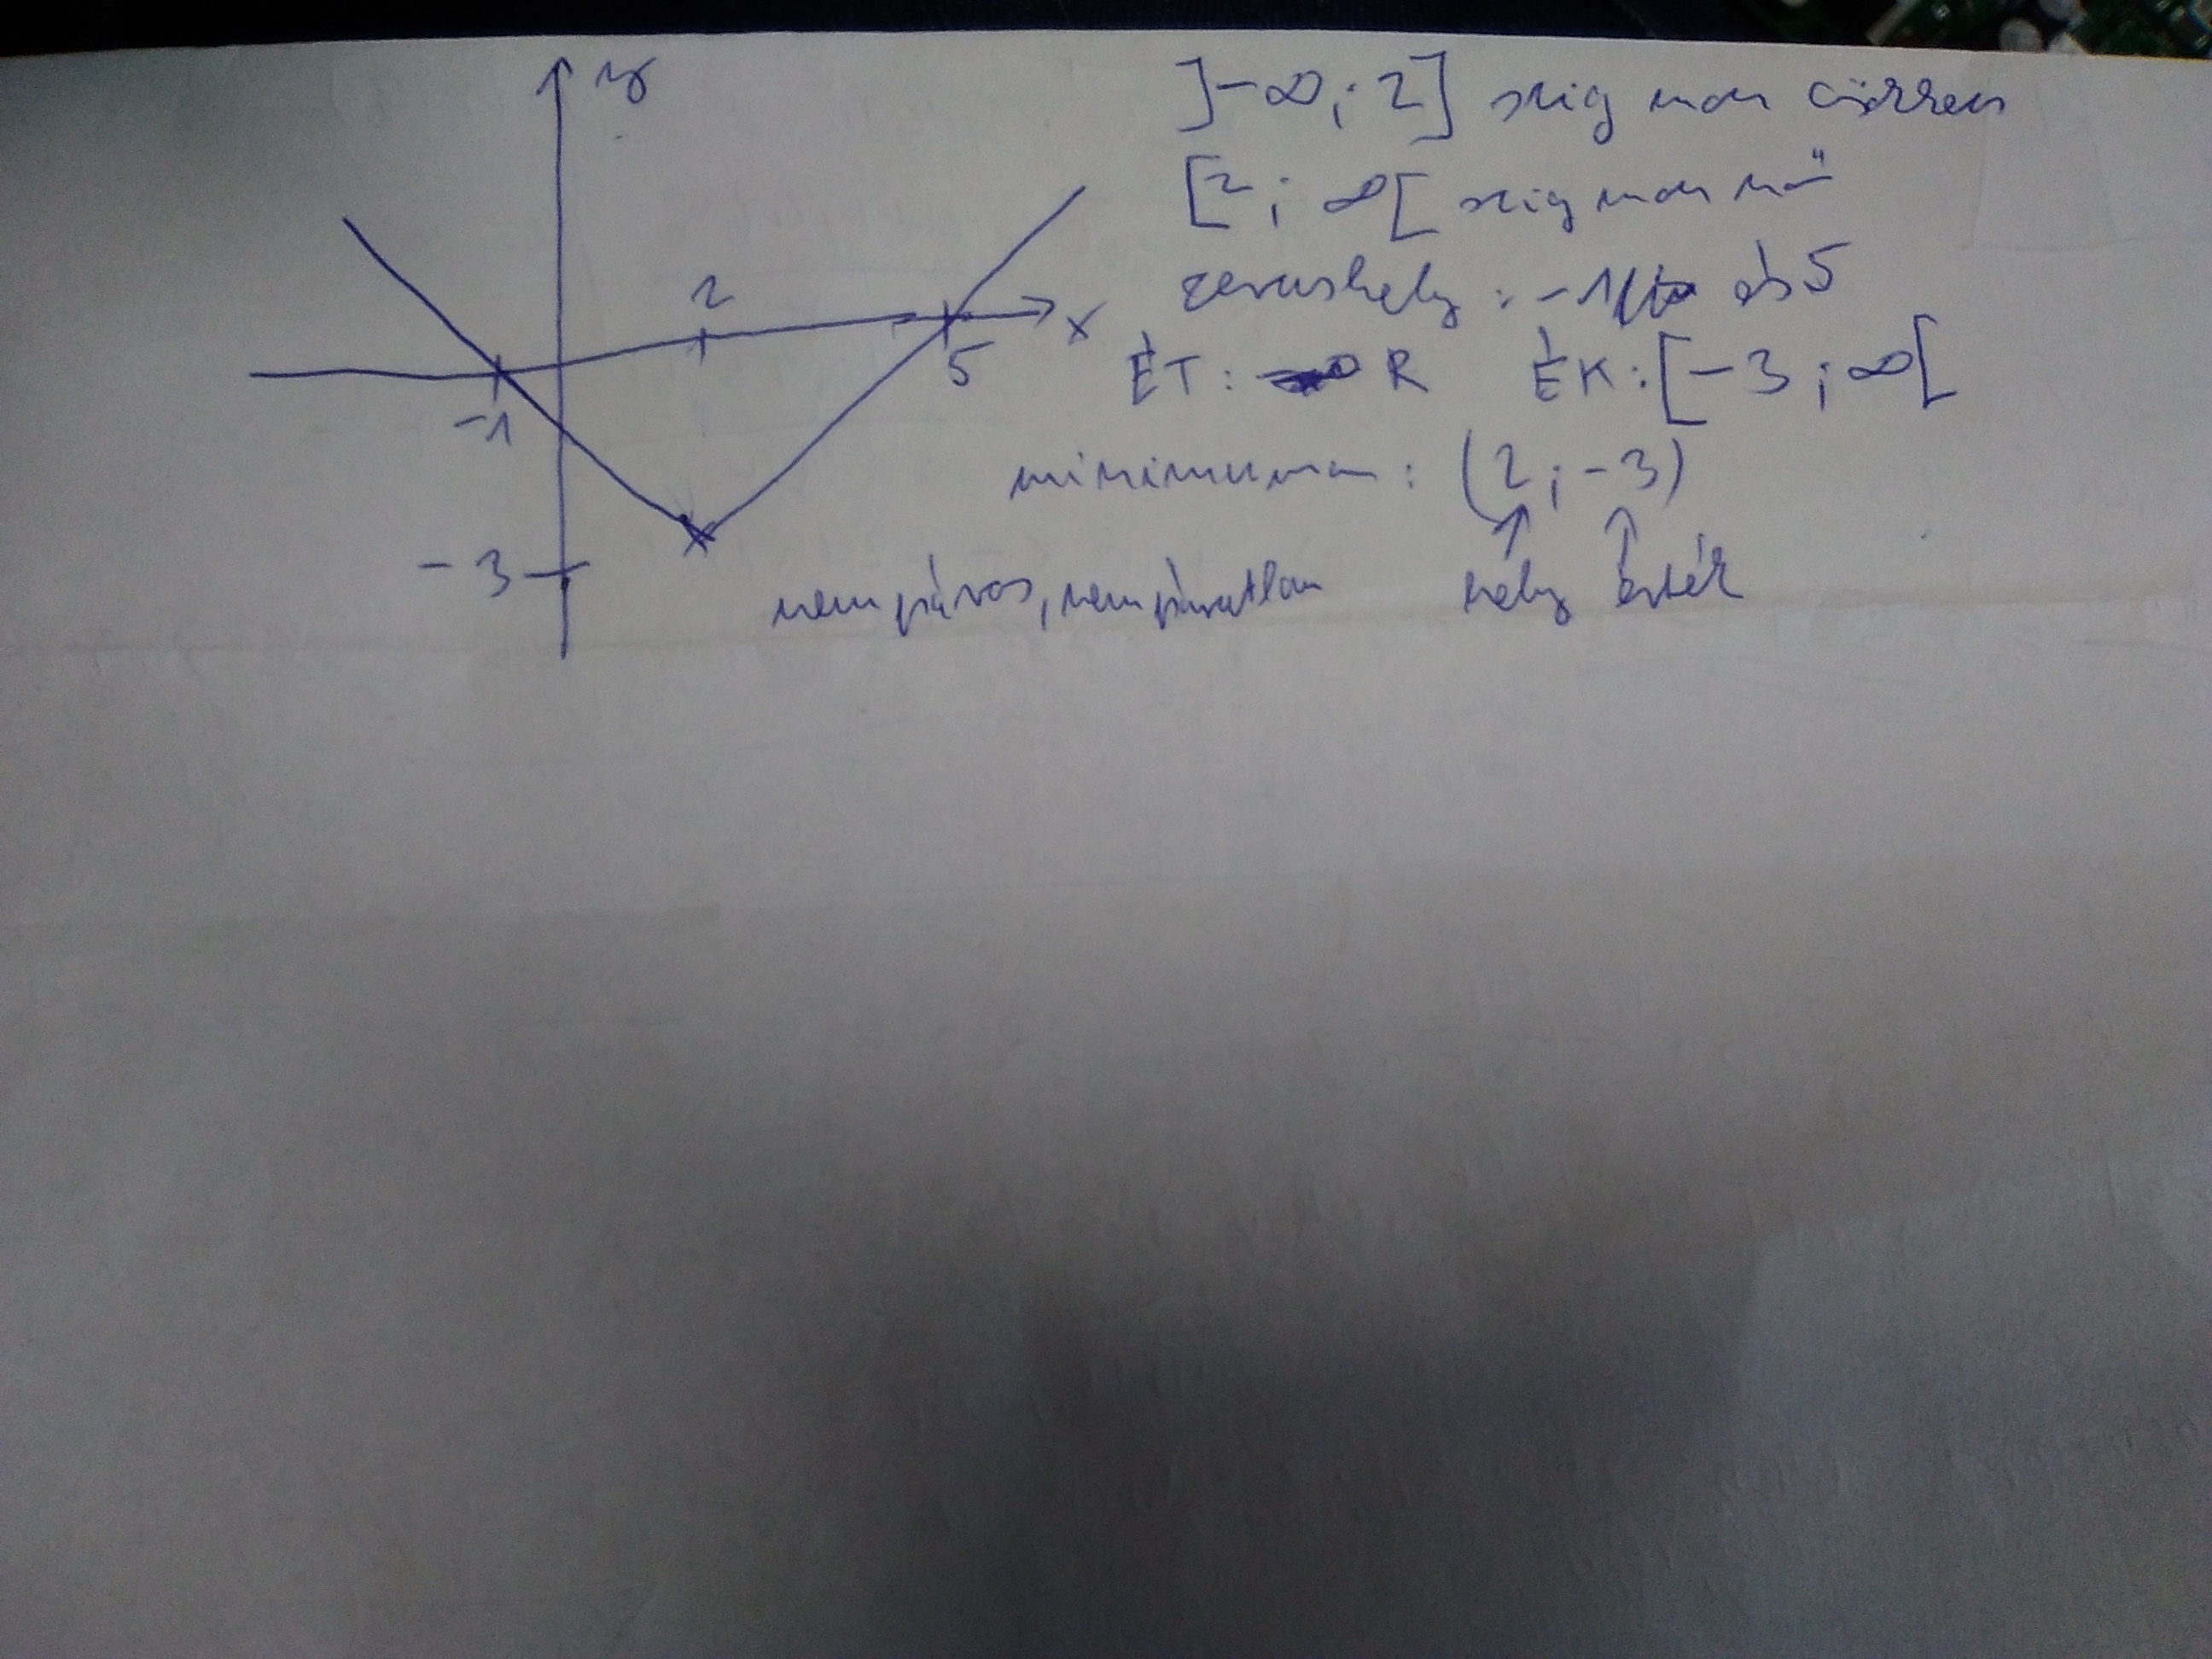 y
]-∞; 2] szig mon csökken
[2; ∞[ szig mon nő
zérushely: -1 és 5
2
x
5
ÉT: R ÉK: [-3; ∞[
-1
minimum: (2; -3)
-3
nem páros, nem páratlan hely érték